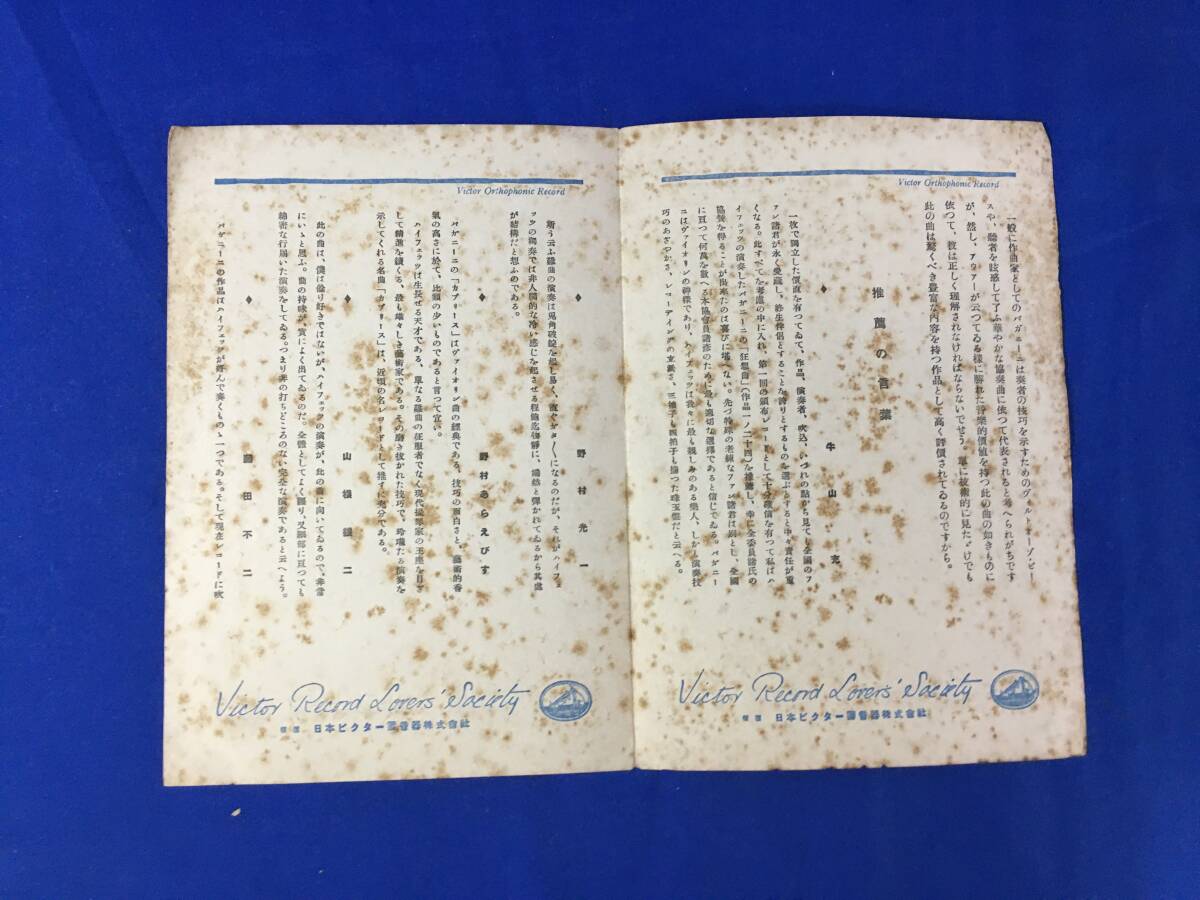 Victor Orthophonic Record
一般に作曲家としてのパガニーニは奏者の技巧を示すためのヴィルトオーゾ・ピー
スや、聽者を眩惑して了ふ華やかな協奏曲に依つて代表されると考へられがちです
が、然し、アウアーが云つてゐる樣に勝れた音樂的價値を持つ此の曲の如きものに
依つて、彼は正しく理解されなければならないでせう。單に技術的に見ただけでも
此の曲は驚くべき豊富な内容を持つ作品として高く評價されてゐるのですから。
推薦の言葉
牛山充
一枚で獨立した價値を有つてゐて、作品、演奏者、吹込、いづれの點から見ても全國のフ
アン諸君が永く愛藏し、終生伴侶とすることを誇りとするものを選ぶとすると中々責任が重
くなる。此すべてを考慮の中に入れ、第一回の頒布レコードとして十分確信を有つて私はハ
イフェッツの演奏したパガニーニの「狂想曲」(作品一ノ二十四)を推薦し、幸に全委員諸氏の
協賛を得ることが出來たのは喜びに堪へない。先づ特殊の老練なファン諸君は別とし、全國
に亘つて何萬を數へる本協會員諸彦のために最も適切な選擇であると信じてゐる。パガニー
ニはヴァイオリンの神樣であり、ハイフェッツは我々に最も親しみのある樂人、しかも演奏技
巧のあざやかさ、レコーディングの立派さ、三拍子も四拍子も揃つた珠玉盤だと云へる。
Victor Record Lovers' Society
日本ビクター蓄音器株式會社
Victor Orthophonic Record
◆
野村光一
斯う云ふ難曲の演奏は兎角破綻を起し易く、直ぐガタ〱になるのだが、それがハイフェ
ッツの獨奏では非人間的な冷い感じを起させる程冷靜に、端然と彈かれてゐるから其處
が結構だと想ふのである。
◆
野村あらえびす
パガニーニの「カプリース」はヴァイオリン曲の經典である、技巧の面白さと、藝術的香
氣の高さに於て、比類の少いものであると言つて宜い。
ハイフェッツは生長せる天才である、單なる難曲の征服者でなく現代提琴家の王座を目ざ
して精進を續くる、最も雄々しき藝術家である。その磨き拔かれた技巧で、玲瓏たる演奏を
示してくれる名曲「カプリース」は、近頃の名レコードとして推すに充分である。
◆
山根銀二
此の曲は、僕は餘り好きではないが、ハイフェッツの演奏が、此の曲に向いてゐるので、非常
にいゝと思ふ。曲の持味が實によく出てゐるのだ。全體としてよく調り、又細部に亘つても
綿密な行届いた演奏をしてゐる。つまり非の打ちどころのない完全な演奏であると云へよう。
◆
藤田不二
パガニーニの作品はハイフェッツが好んで奏くものゝ一つである。そして現在レコードに吹
Victor Record Lovers' Society
日本ビクター蓄音器株式會社